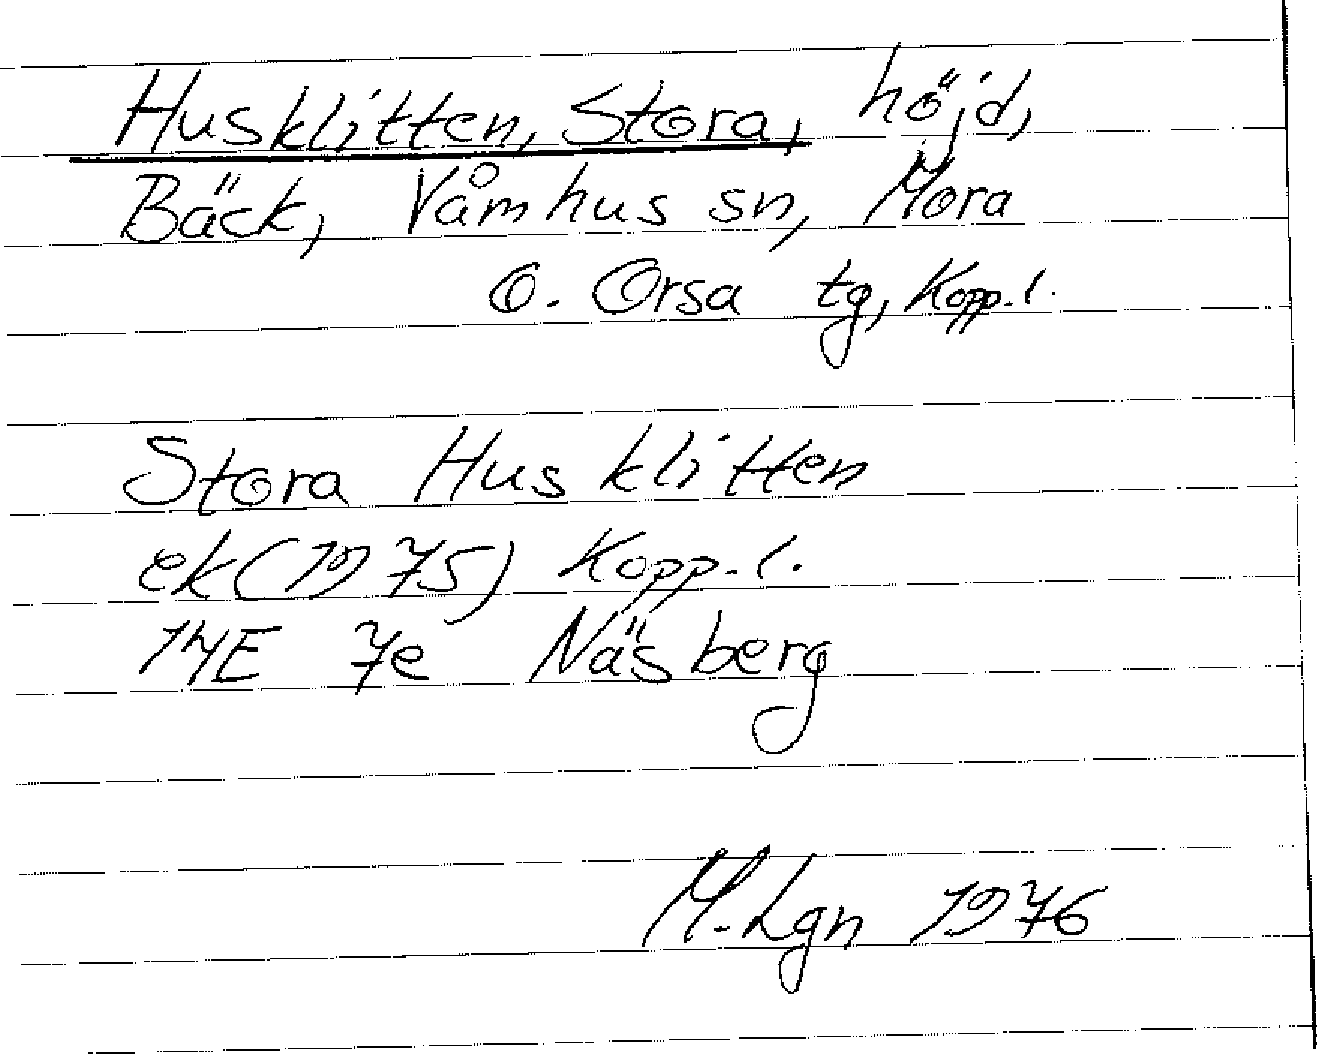 Husklitten, Stora, höjd,
Bäck, Våmhus sn, Mora
o. Orsa tg, Kopp.l.
Stora Husklitten
ek(1975) Kopp.l.
14E 7e Näsberg
M.Lgn 1976